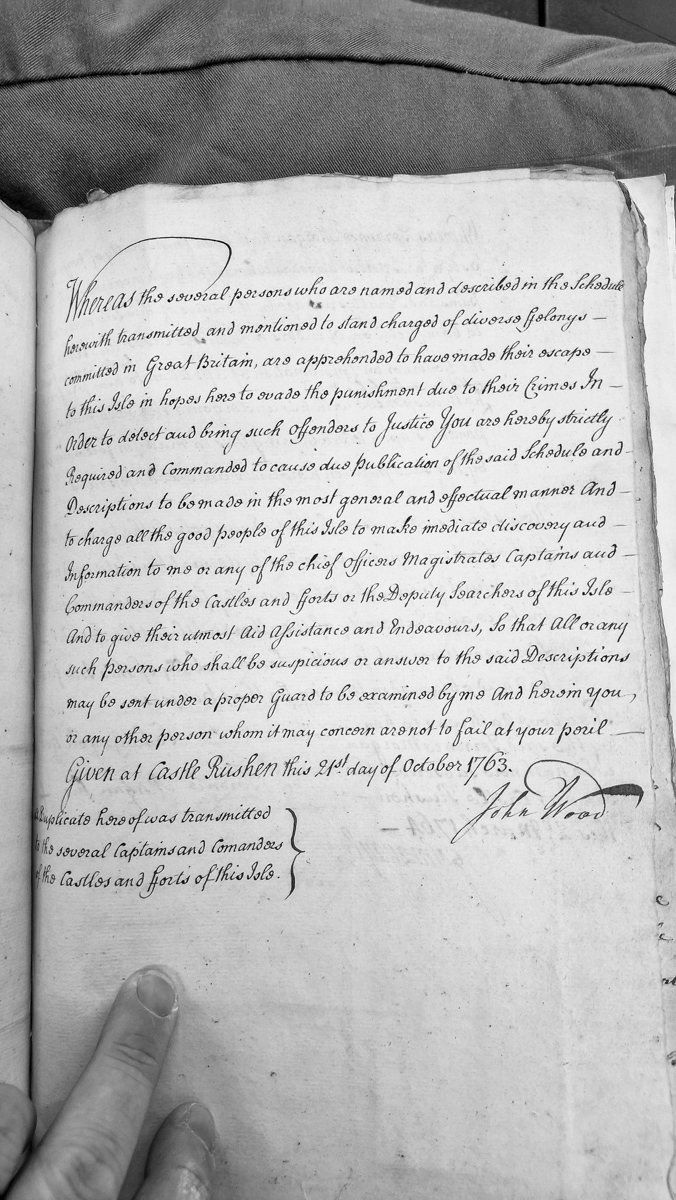 Whereas the several persons who are named and described in the Schedule
herewith transmitted and mentioned to stand charged of diverse ffelonys —
committed in Great Britain, are apprehended to have made their escape —
to this Isle in hopes here to evade the punishment due to their Crimes In —
Order to detect and bring such Offenders to Justice You are hereby strictly
Required and Commanded to cause due Publication of the said Schedule and —
Descriptions to be made in the most general and effectual manner And —
to charge all the good people of this Isle to make imediate discovery and —
Information to me or any of the chief Officers Magistrates Captains and —
Commanders of the Castles and fforts or the Deputy Searchers of this Isle —
And to give their utmost Aid Assistance and Endeavours, So that All or any
such persons who shall be suspicious or answer to the said Descriptions
may be sent under a proper Guard to be examined by me And herein you,
or any other person whom it may concern are not to fail at your peril —
Given at Castle Rushen this 21st day of October 1763.
John Wood
a Duplicate hereof was transmitted
to the several Captains and Comanders
of the Castles and fforts of this Isle.